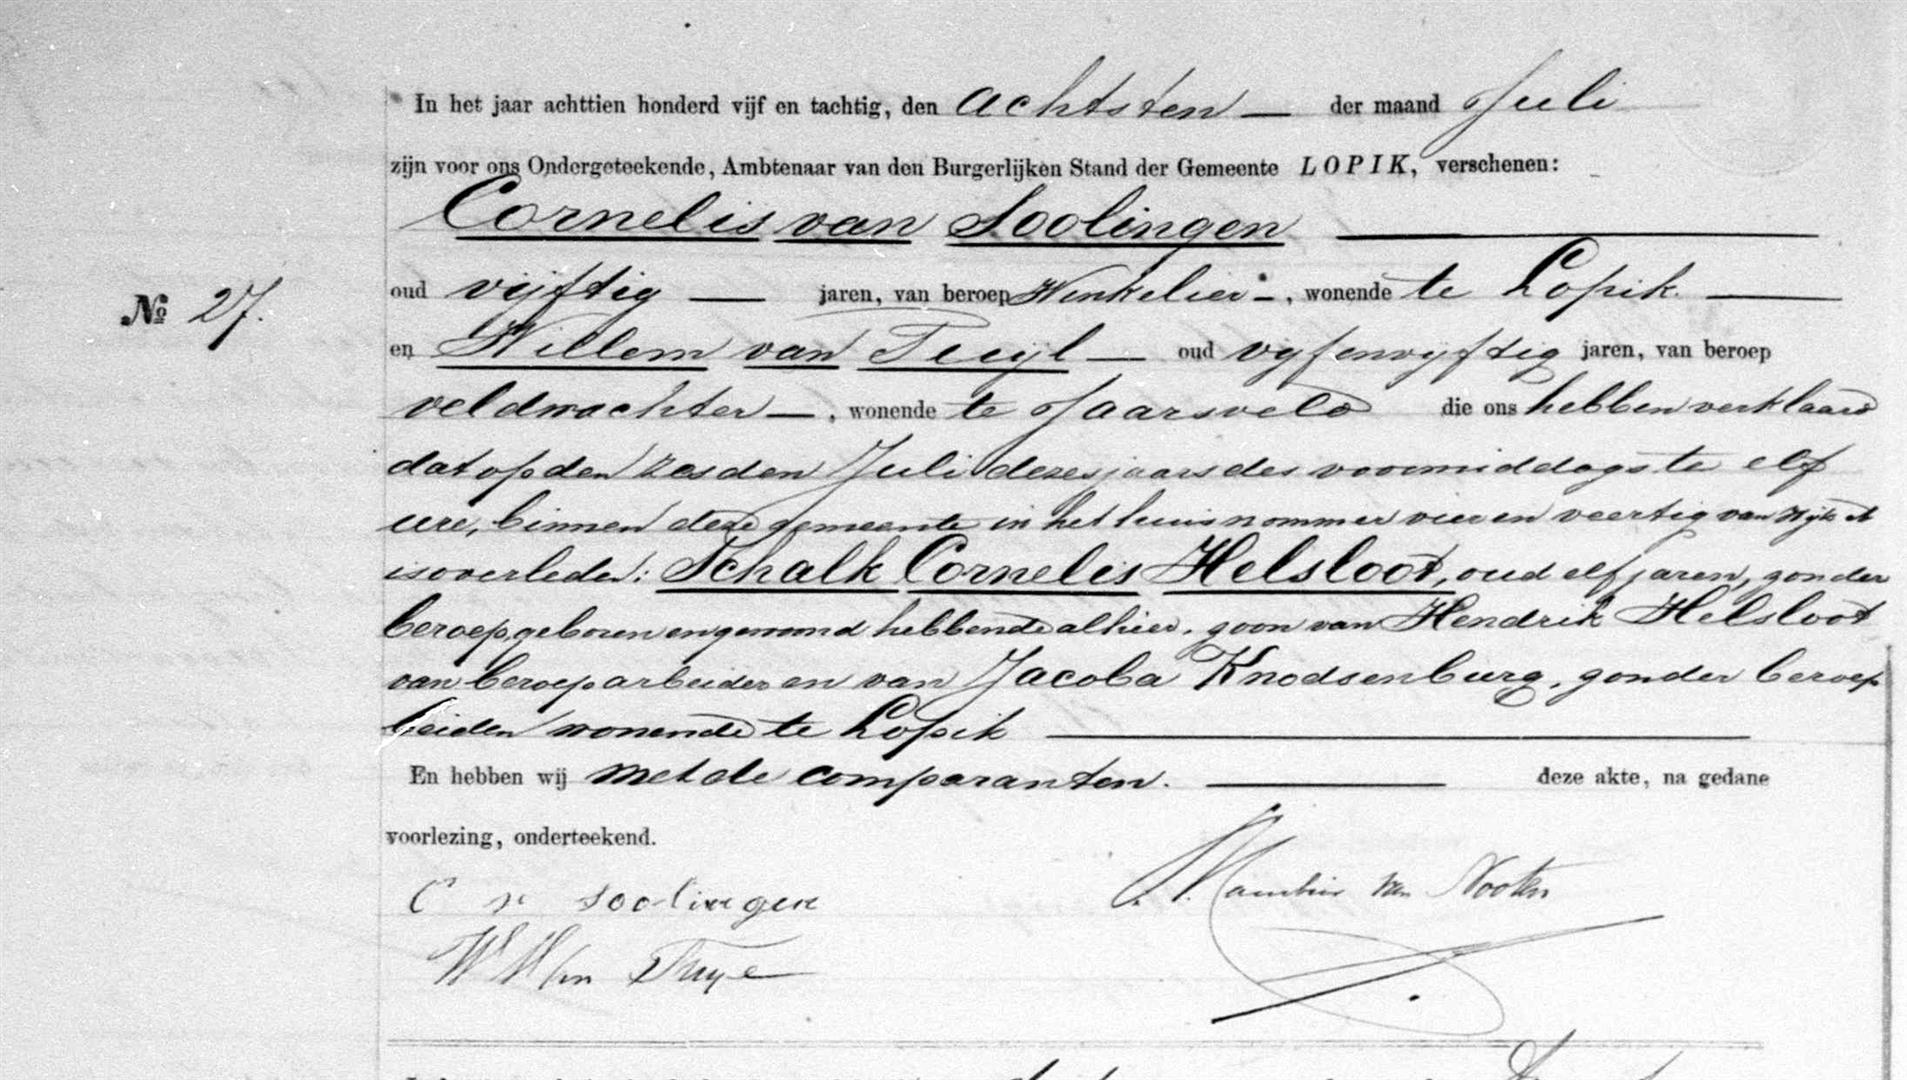 In het jaar achttien honderd vijf en tachtig, den achtsten — der maand Juli
zijn voor ons Ondergeteekende, Ambtenaar van den Burgerlijken Stand der Gemeente LOPIK, verschenen:
Cornelis van Soolingen
oud vijftig — jaren, van beroep Winkelier —, wonende te Lopik.
№ 27.
en Willem van Tuijl — oud vijfenvijftig jaren, van beroep
veldwachter —, wonende te Jaarsveld die ons hebben verklaard
dat op den zesden Juli dezes jaars des voormiddags te elf
ure, binnen deze gemeente in het huis nommer vier en veertig van Wijk A
is overleden: Schalk Cornelis Helsloot, oud elf jaren, zonder
beroep, geboren en gewoond hebbende alhier, zoon van Hendrik Helsloot
van beroep arbeider en van Jacoba Knodsenburg, zonder beroep
beiden wonende te Lopik
En hebben wij met de comparanten. deze akte, na gedane
voorlezing, onderteekend.
C v soolingen
van Nooten
W van Tuyl